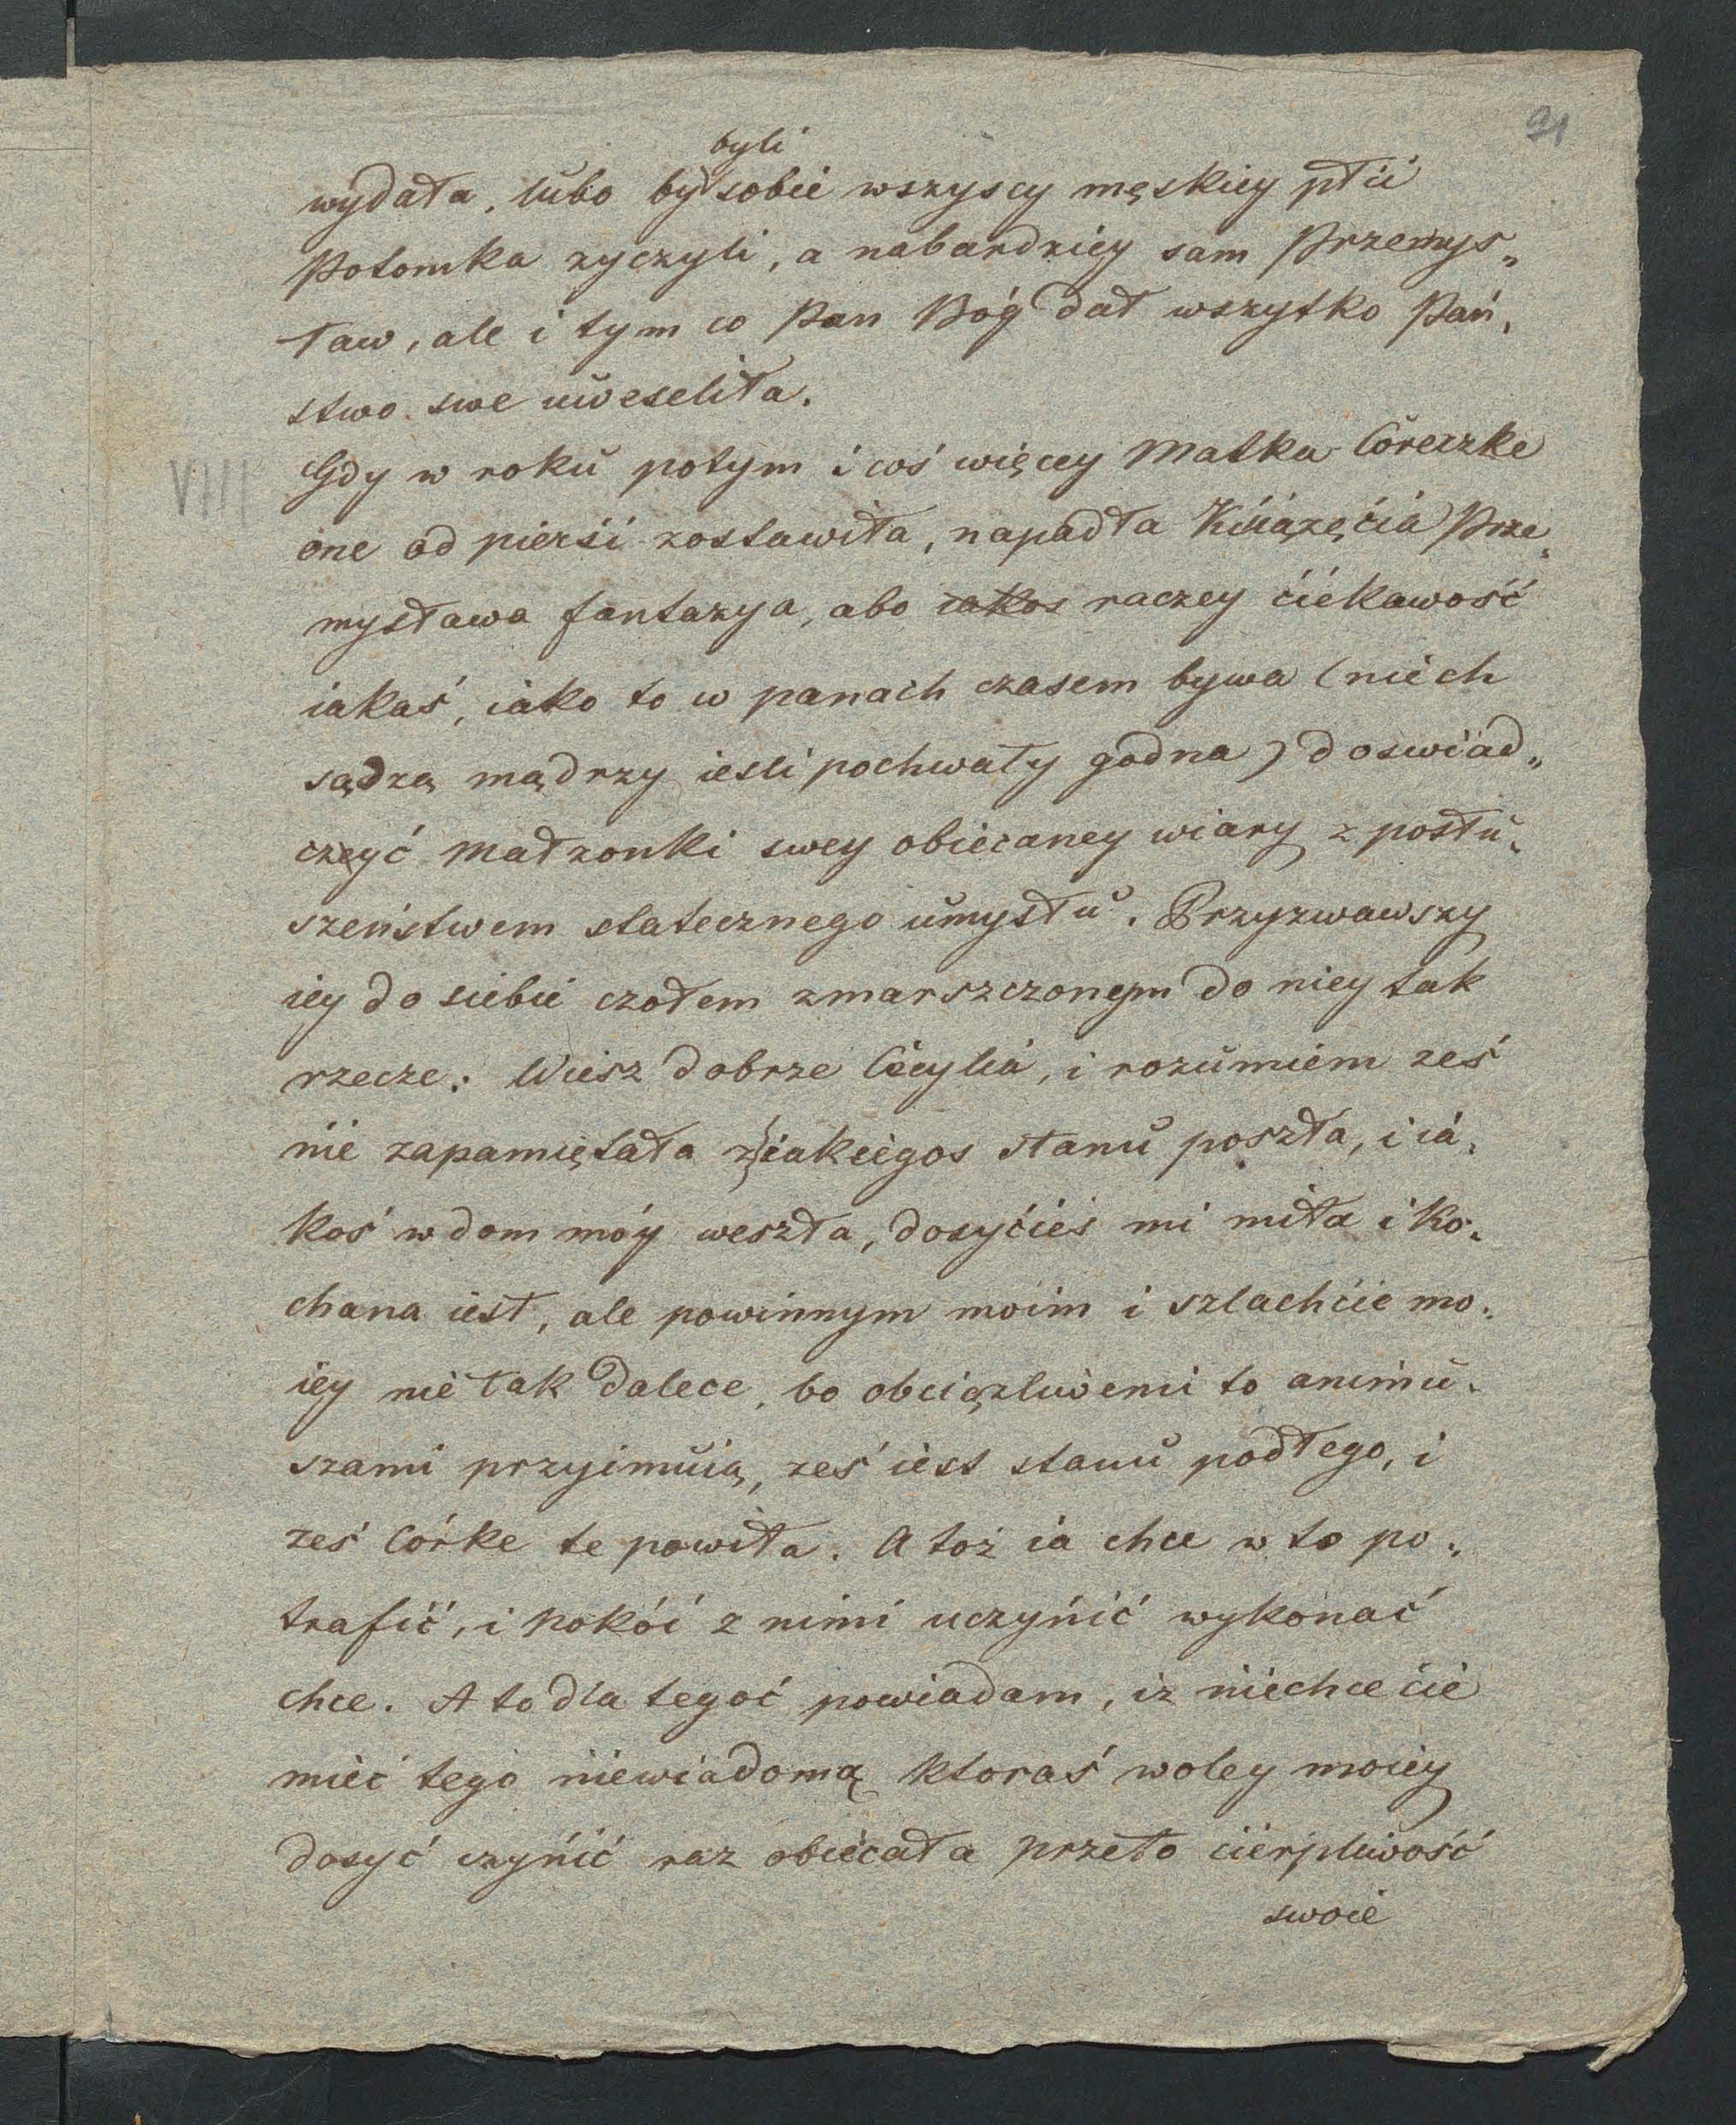 91
byli
wydała, lubo by sobie wszyscy męskiey płci
Potomka zyczyli, a nabardziey sam Przemys„
ław, ale i tym co Pan Bóg dał wszytko Pań„
stwo swe uweseliła.
VIII Gdy w roku potym i coś więcey Matka Córeczke
one od pierśi zostawiła, napadła Kśiążęćia Prze„
mysława fantazya, abo iakos raczey ćiekawość
iakaś, iako to w panach czasem bywa (niech
sądzą mądrzy iesli pochwały godna) doswiad„
czyć Małzonki swey obiecaney wiary z posłu„
szeństwem statecznego umysłu. Przyzwawszy
iey do siebie czołem zmarszczonym do niey tak
rzecze: Wiesz dobrze Cecylia, i rozumiem ześ
nie zapamiętała z iakiegos stanu poszła, i ia„
koś w dom móy weszła, dosyćieś mi miła i ko„
chana iest, ale powinnym moim i szlachcie mo„
iey nie tak dalece, bo obciązliwemi to animu„
szami przyimuią, ześ iest stanu podłego, i
ześ Córke te powiła. A toż ia chce w to po„
trafić, i pokói z nimi uczynić wykonać
chce. A to dla tegoć powiadam, iz niechce ćie
mieć tego niewiadomą ktoraś woley moiey
dosyć czynić raz obiecała przeto cierpliwość
swoie